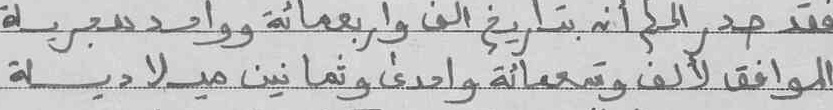 فقد صدر الحكم أنه بتاريخ الف واربعمائة وواحد هجرية
الموافق لألف وتسعمائة واحدى وثمانين ميلادية